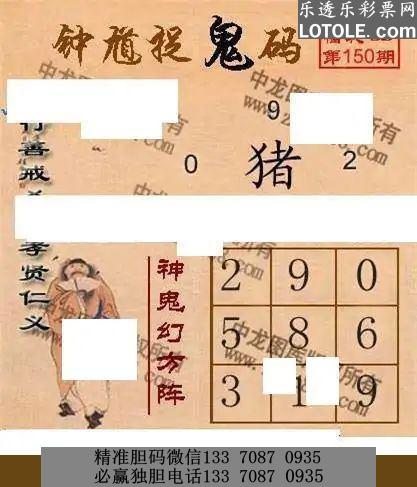 乐透乐彩票网
LOTOLE.COM
钟馗捉鬼码
第150期
9
0 猪 2
善戒
孝贤仁义
神鬼幻方阵
2 9 0
5 8 6
3 1 9
中龙图库
所有
精准胆码微信133 7087 0935
必赢独胆电话133 7087 0935